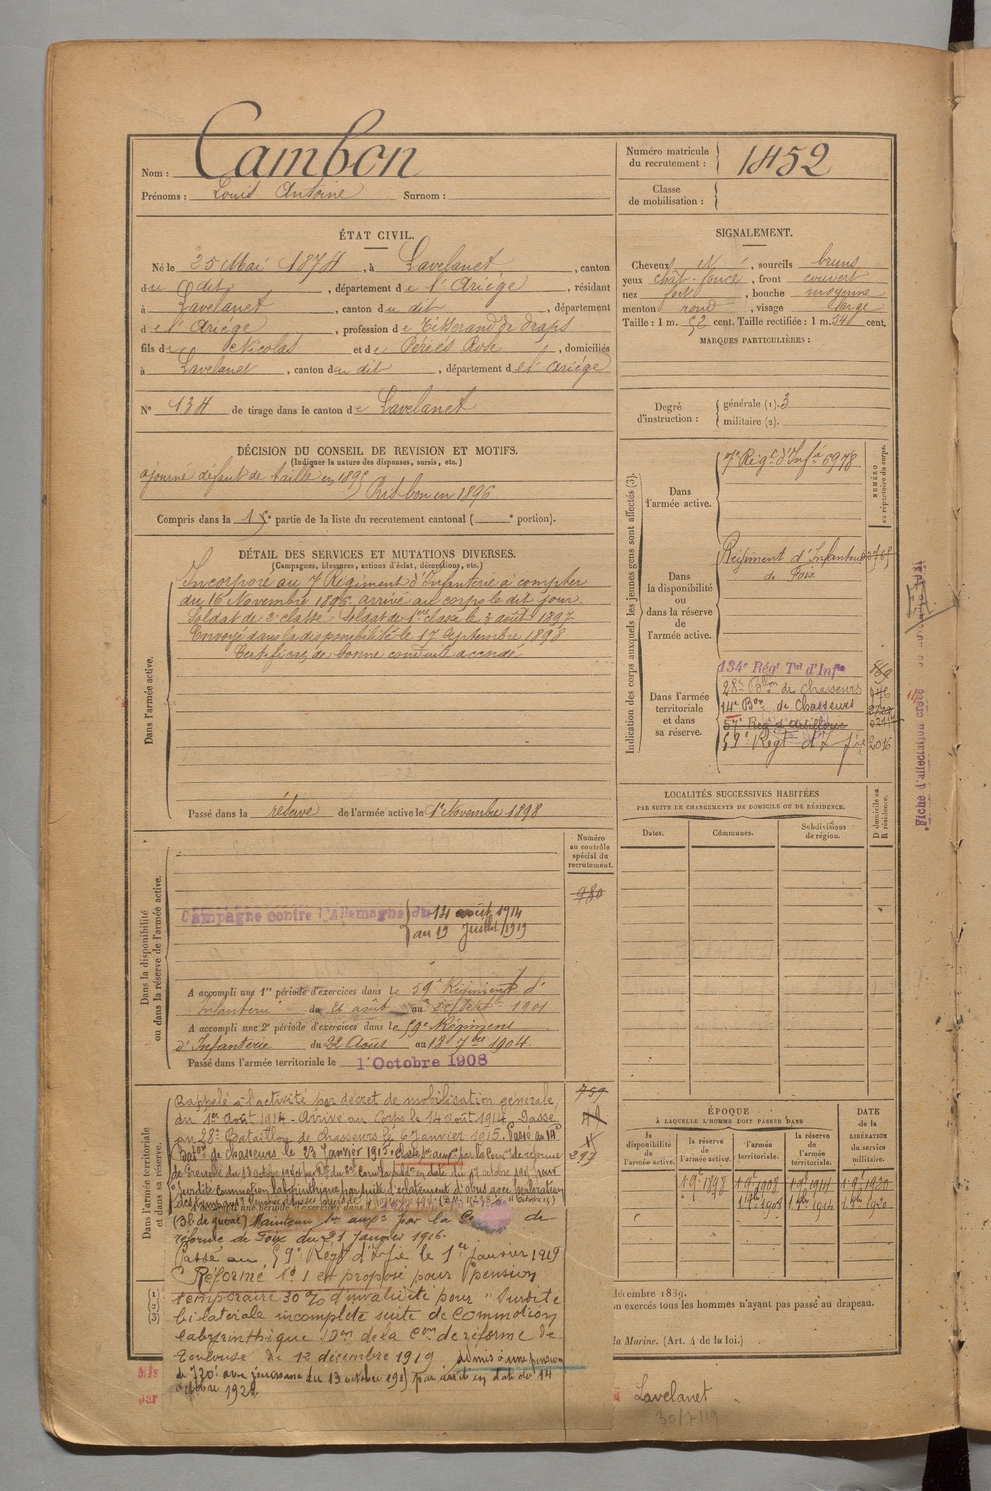 Nom : Cambon
Prénoms : Louis Antoine Surnom :
Numéro matricule du recrutement : 1452
Classe de mobilisation :
ÉTAT CIVIL.
Né le 25 Mai 1874, à Lavelanet, canton
du dit, département de l'Ariège, résidant
à Lavelanet, canton du dit, département
de l'Ariège, profession de Tisserand de draps
fils de Nicolas et de Périés Rose, domiciliés
à Lavelanet, canton du dit, département de l'Ariège
N° 134 de tirage dans le canton de Lavelanet
SIGNALEMENT.
Cheveux , sourcils bruns
yeux chât. foncé, front couvert
nez fort, bouche moyenne
menton rond, visage large
Taille : 1 m. 52 cent. Taille rectifiée : 1 m. 54 cent.
MARQUES PARTICULIÈRES :
Degré d'instruction : générale (1). 3
militaire (2).
DÉCISION DU CONSEIL DE REVISION ET MOTIFS.
(Indiquer la nature des dispenses, sursis, etc.)
ajourné défaut de taille en 1895
Pris bon en 1896
Compris dans la 1e partie de la liste du recrutement cantonal ( e portion).
DÉTAIL DES SERVICES ET MUTATIONS DIVERSES.
(Campagnes, blessures, actions d'éclat, décorations, etc.)
Dans l'armée active.
Incorporé au 7e Régiment d'Infanterie à compter
du 16 Novembre 1896 arrivé au corps le dit jour.
Soldat de 2e classe. Soldat de 1ere classe le 3 août 1897
Envoyé dans la disponibilité le 17 Septembre 1898
Certificat de bonne conduite accordé
Passé dans la réserve de l'armée active le 1er Novembre 1898
Indication des corps auxquels les jeunes gens sont affectés (3).
NUMÉRO au répertoire du corps.
Dans l'armée active.
7e Régt d'Infie 6978
Dans la disponibilité ou dans la réserve de l'armée active.
Régiment d'Infanterie
de Foix
Dans l'armée territoriale et dans sa réserve.
134e Régt Tal d'Infie
28e Bton de Chasseurs 946
14e Bon de Chasseurs
57e Régt d'Artillerie
59e Régt d'Infie 2016
LOCALITÉS SUCCESSIVES HABITÉES
PAR SUITE DE CHANGEMENTS DE DOMICILE OU DE RÉSIDENCE.
Dates. Communes. Subdivisions de région. D domicile ou R résidence.
Dans la disponibilité ou dans la réserve de l'armée active.
Numéro au contrôle spécial du recrutement.
980
Campagne contre l'Allemagne du 14 août 1914
au 19 Juillet 1919
A accompli une 1re période d'exercices dans le 59e Régiment d'
Infanterie du 26 août au Septembre 1901
A accompli une 2e période d'exercices dans le 59e Régiment
d'Infanterie du 22 Août au 18 7bre 1904.
Passé dans l'armée territoriale le 1er Octobre 1908
Dans l'armée territoriale et dans sa réserve.
759
297
Rappelé à l'activité par décret de mobilisation générale
du 1er Août 1914. Arrivé au Corps le 14 août 1914. Passé
au 28e Bataillon de chasseurs le 6 Janvier 1915. Passé au 14e
Baton de chasseurs le 23 Janvier 1915. Classé Sce auxre par la Comon de réforme
de Grenoble du 13 octobre 1915
surdité commotion labyrinthique par suite d'éclatement d'obus avec perforation
(Bb. de guerre) Maintenu Sce auxre par la Con de
réforme de Foix du 21 Janvier 1916.
Passé au 59e Régt d'Infie le 1er Janvier 1919
Réformé N° 1 et proposé pour pension
temporaire 30% d'invalidité pour "Surdité
bilatérale incomplète suite de Commotion
labyrinthique." Don de la Con de réforme de
Toulouse du 12 décembre 1919. Admis à une pension
de 720f avec jouissance du 13 octobre 1919 par arrêté en date du 14
octobre 1920.
ÉPOQUE
À LAQUELLE L'HOMME DOIT PASSER DANS
la disponibilité de l'armée active. la réserve de l'armée active. l'armée territoriale. la réserve de l'armée territoriale.
DATE DE LA LIBÉRATION du service militaire.
1.9bre 1898 1.9.1908 1.9.1914 1.9.1920
1.8bre 1908 1.8bre 1914 1.8bre 1920
décembre 1889.
n exercés tous les hommes n'ayant pas passé au drapeau.
la Marine. (Art. 4 de la loi.)
Lavelanet
30/7/19
Fiche d'affectation créée